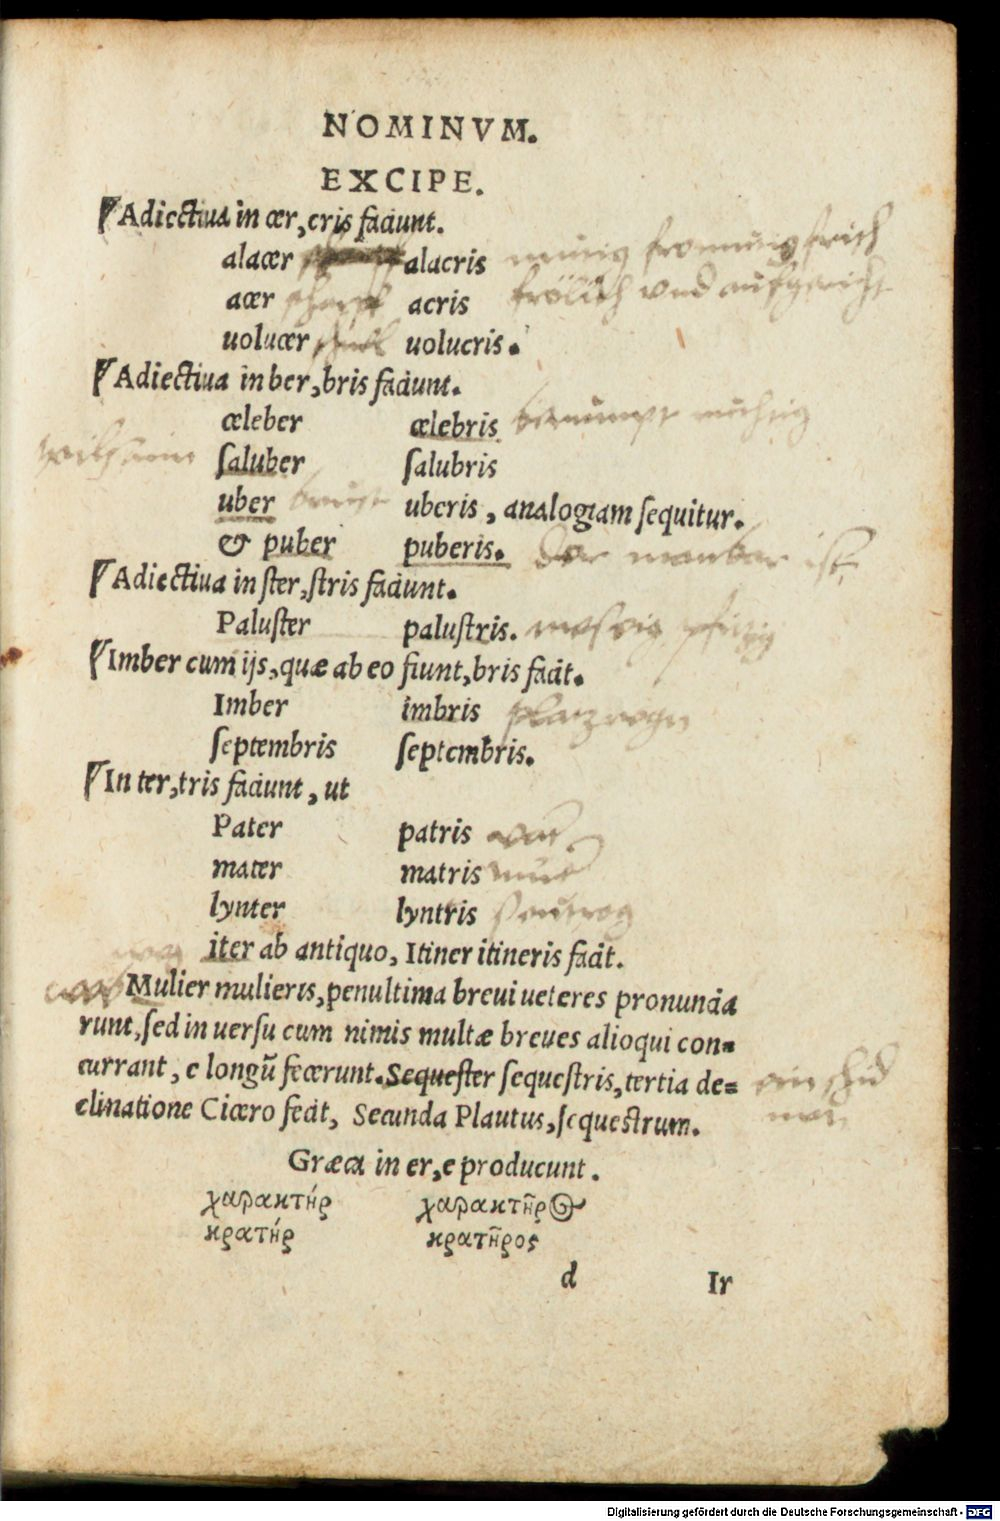 NOMINVM.
EXCIPE.
Adiectiua in cer, cris faciunt.
alacer alacris
acer scharpff acris frölich vnd auffgericht
uolucer uolucris.
Adiectiua in ber, bris faciunt.
celeber celebris berumpt
saluber salubris
uber brust uberis, analogiam sequitur.
& puber puberis. Der manbar ist
Adiectiua in ster, stris faciunt.
Paluster palustris.
Imber cum ijs, quæ ab eo fiunt, bris facit.
Imber imbris platzregen
septembris septembris.
In ter, tris faciunt, ut
Pater patris
mater matris
lynter lyntris seutrog
weg iter ab antiquo, Itiner itineris facit.
Mulier mulieris, penultima breui ueteres pronuncia
runt, sed in uersu cum nimis multæ breues alioqui con=
currant, e longũ fecerunt. Sequester sequestris, tertia de= ein schid
clinatione Cicero fecit, Secunda Plautus, sequestrum. man
Græca in er, e producunt.
χαρακτήρ χαρακτῆρος
κρατήρ κρατῆρος
d Ir
Digitalisierung gefördert durch die Deutsche Forschungsgemeinschaft - DFG